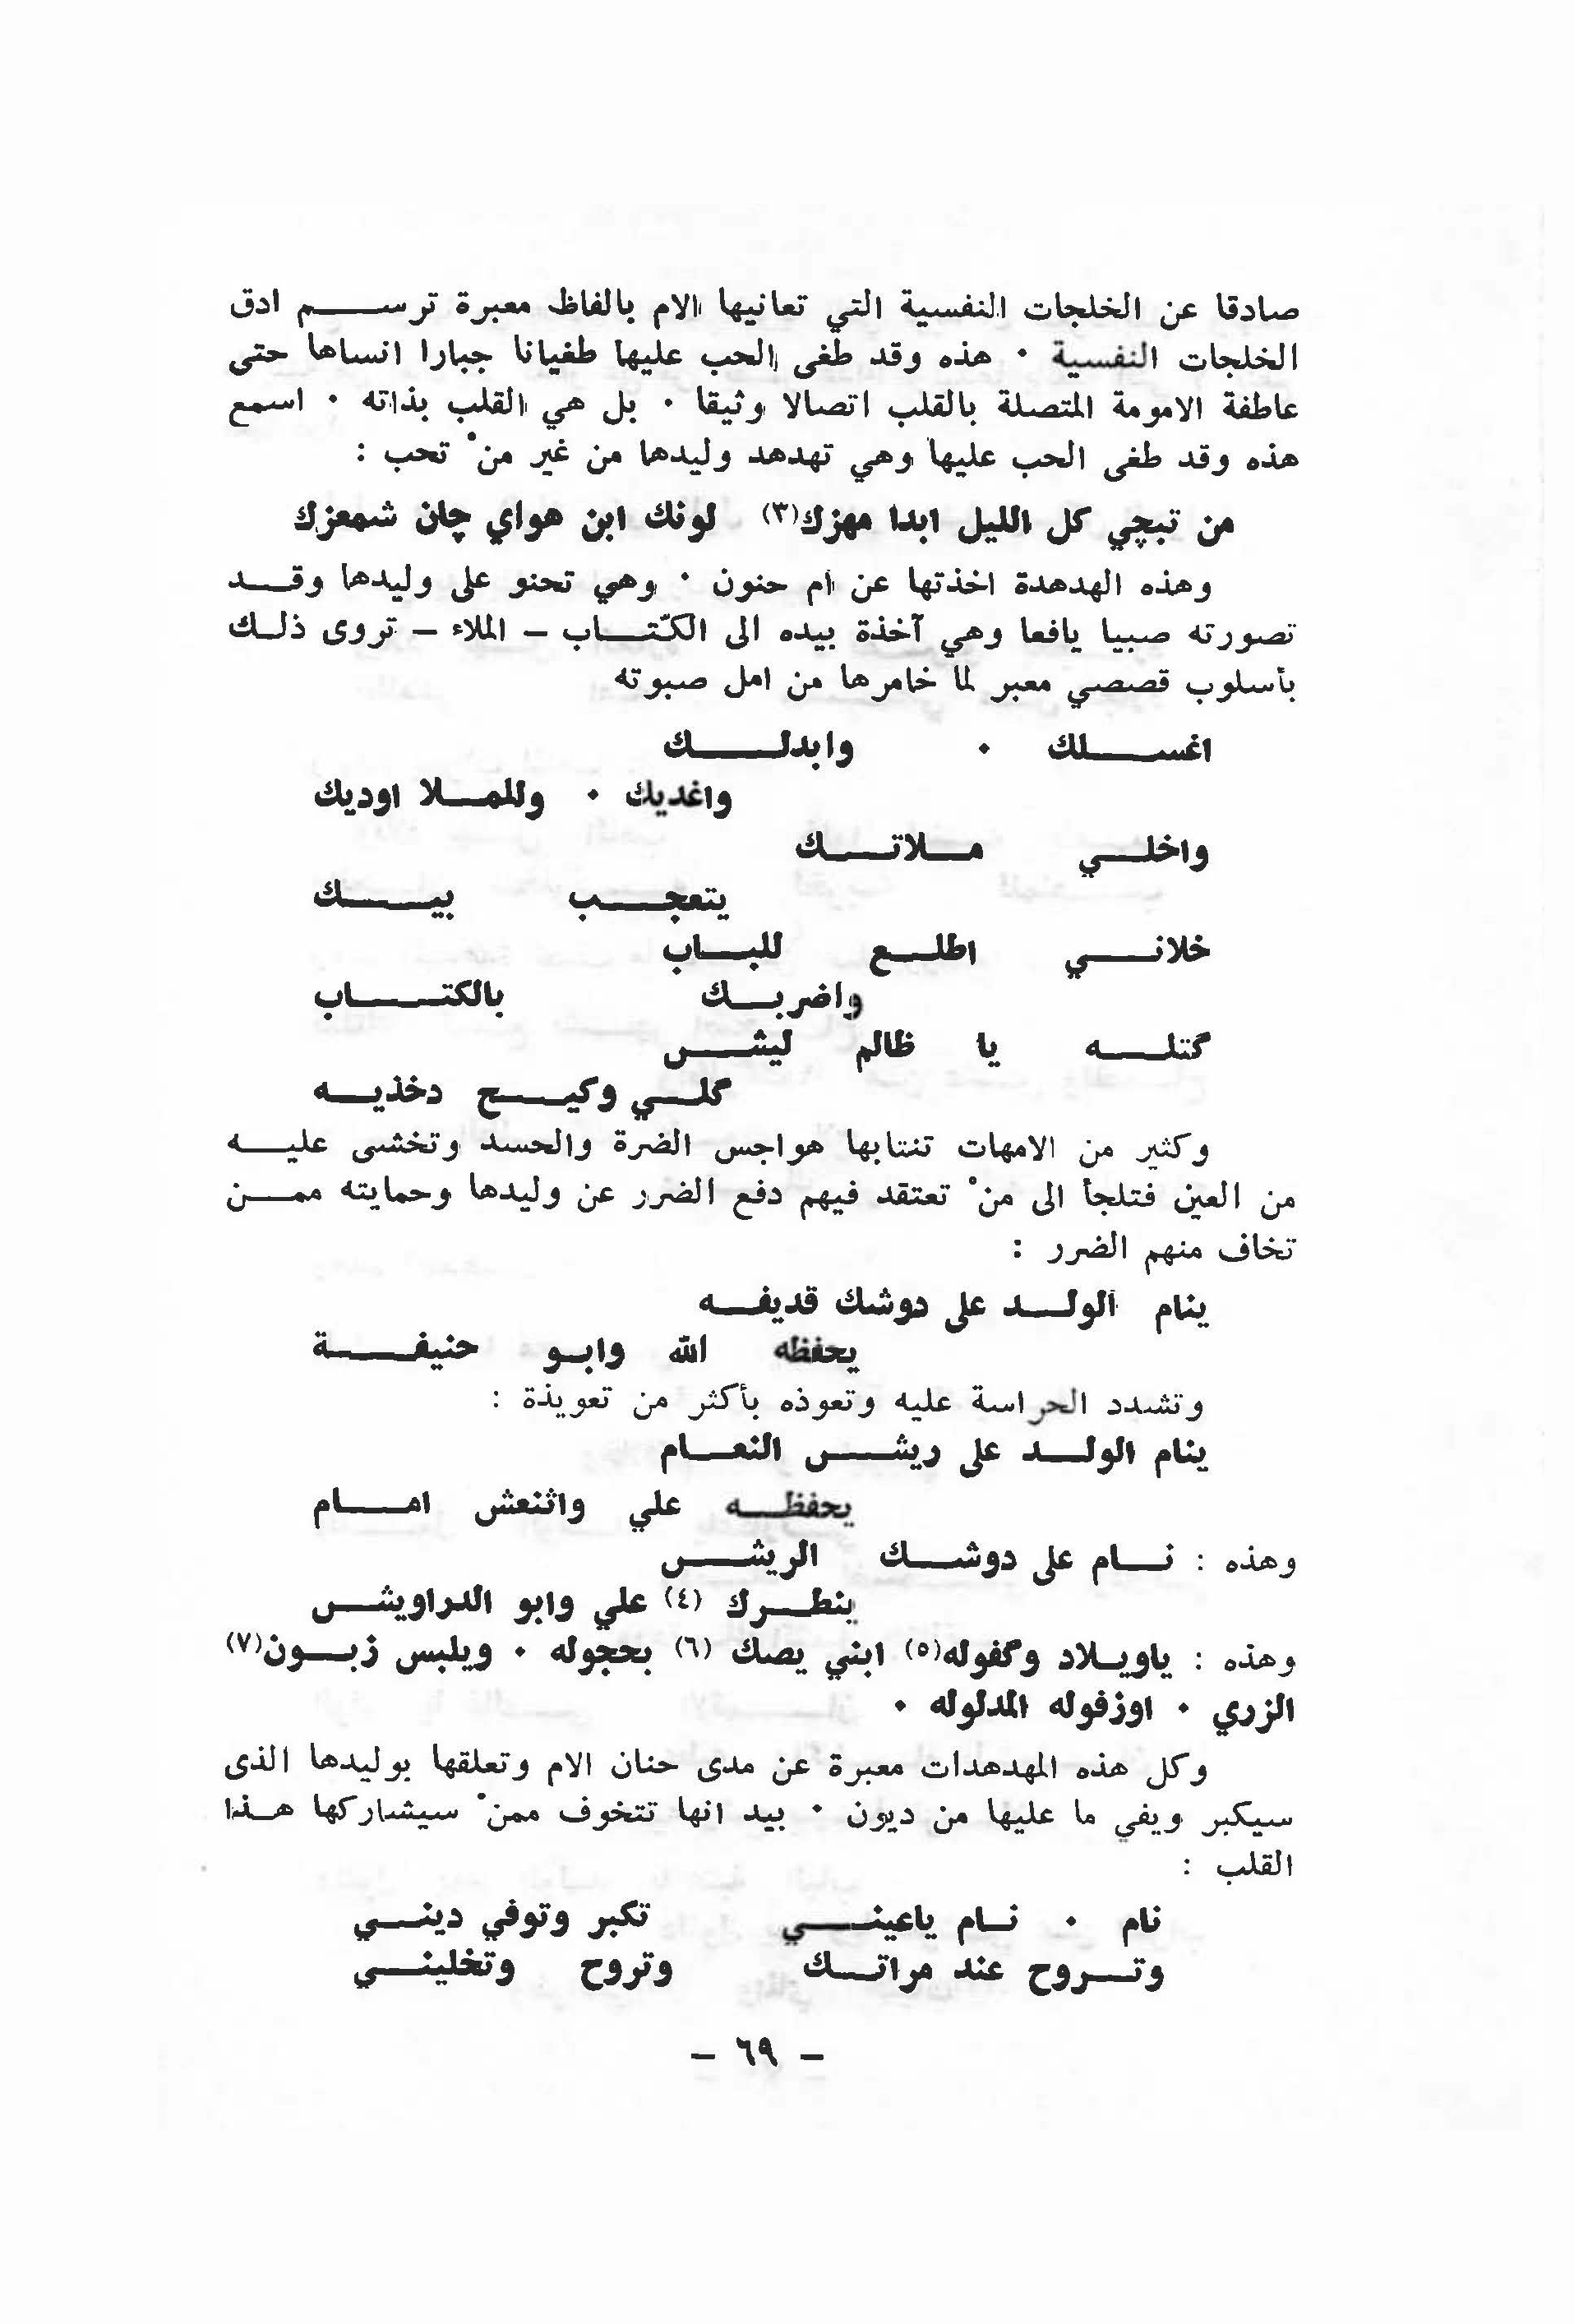 صادقا عن الخلجات النفسية التي تعانيها الام بالفاظ معبرة ترسم ادق
الخلجات النفسية ٠ هذه وقد طغى الحب عليها طغيانا جبارا انساها حتى
عاطفة الامومة المتصلة بالقلب اتصالا وثيقا ٠ بل هي القلب بذاته ٠ اسمع
هذه وقد طغى الحب عليها وهي تهدهد وليدها من غير منْ تحب :
من تبچي كل الليل ابدا مهزك(٣) لونك ابن هواي چان شمعزك
وهذه الهدهدة اخذتها عن ام حنون ٠ وهي تحنو على وليدها وقد
تصورته صبيا يافعا وهي آخذة بيده الى الكتّاب – الملاء – تروى ذلك
بأسلوب قصصي معبر لما خامرها من امل صبوته
اغسلك ٠ وابدلك
واغديك ٠ وللملا اوديك
واخلي ملاتك
يتعجب بيك
خلاني اطلع للباب
واضربك بالكتاب
گتله يا ظالم ليش
گلي وكيح دخذيه
وكثير من الامهات تنتابها هواجس الضرة والحسد وتخشى عليه
من العين فتلجأ الى منْ تعتقد فيهم دفع الضرر عن وليدها وحمايته ممن
تخاف منهم الضرر :
ينام الولد على دوشك قديفه
يحفظه الله وابو حنيفة
وتشدد الحراسة عليه وتعوذه بأكثر من تعويذة :
ينام الولد على ريش النعام
يحفظه علي واثنعش امام
وهذه : نام على دوشك الريش
ينطرك (٤) علي وابو الدراويش
وهذه : ياويلاد وگفوله(٥) ابني يصك (٦) بحجوله ٠ ويلبس زبون(٧)
الزري ٠ اوزفوله المدلوله ٠
وكل هذه المهدهدات معبرة عن مدى حنان الام وتعلقها بوليدها الذى
سيكبر ويفي ما عليها من ديون ٠ بيد انها تتخوف ممنْ سيشاركها هذا
القلب :
نام ٠ نام ياعيني تكبر وتوفي ديني
وتروح عند مراتك وتروح وتخليني
– ٦٩ –